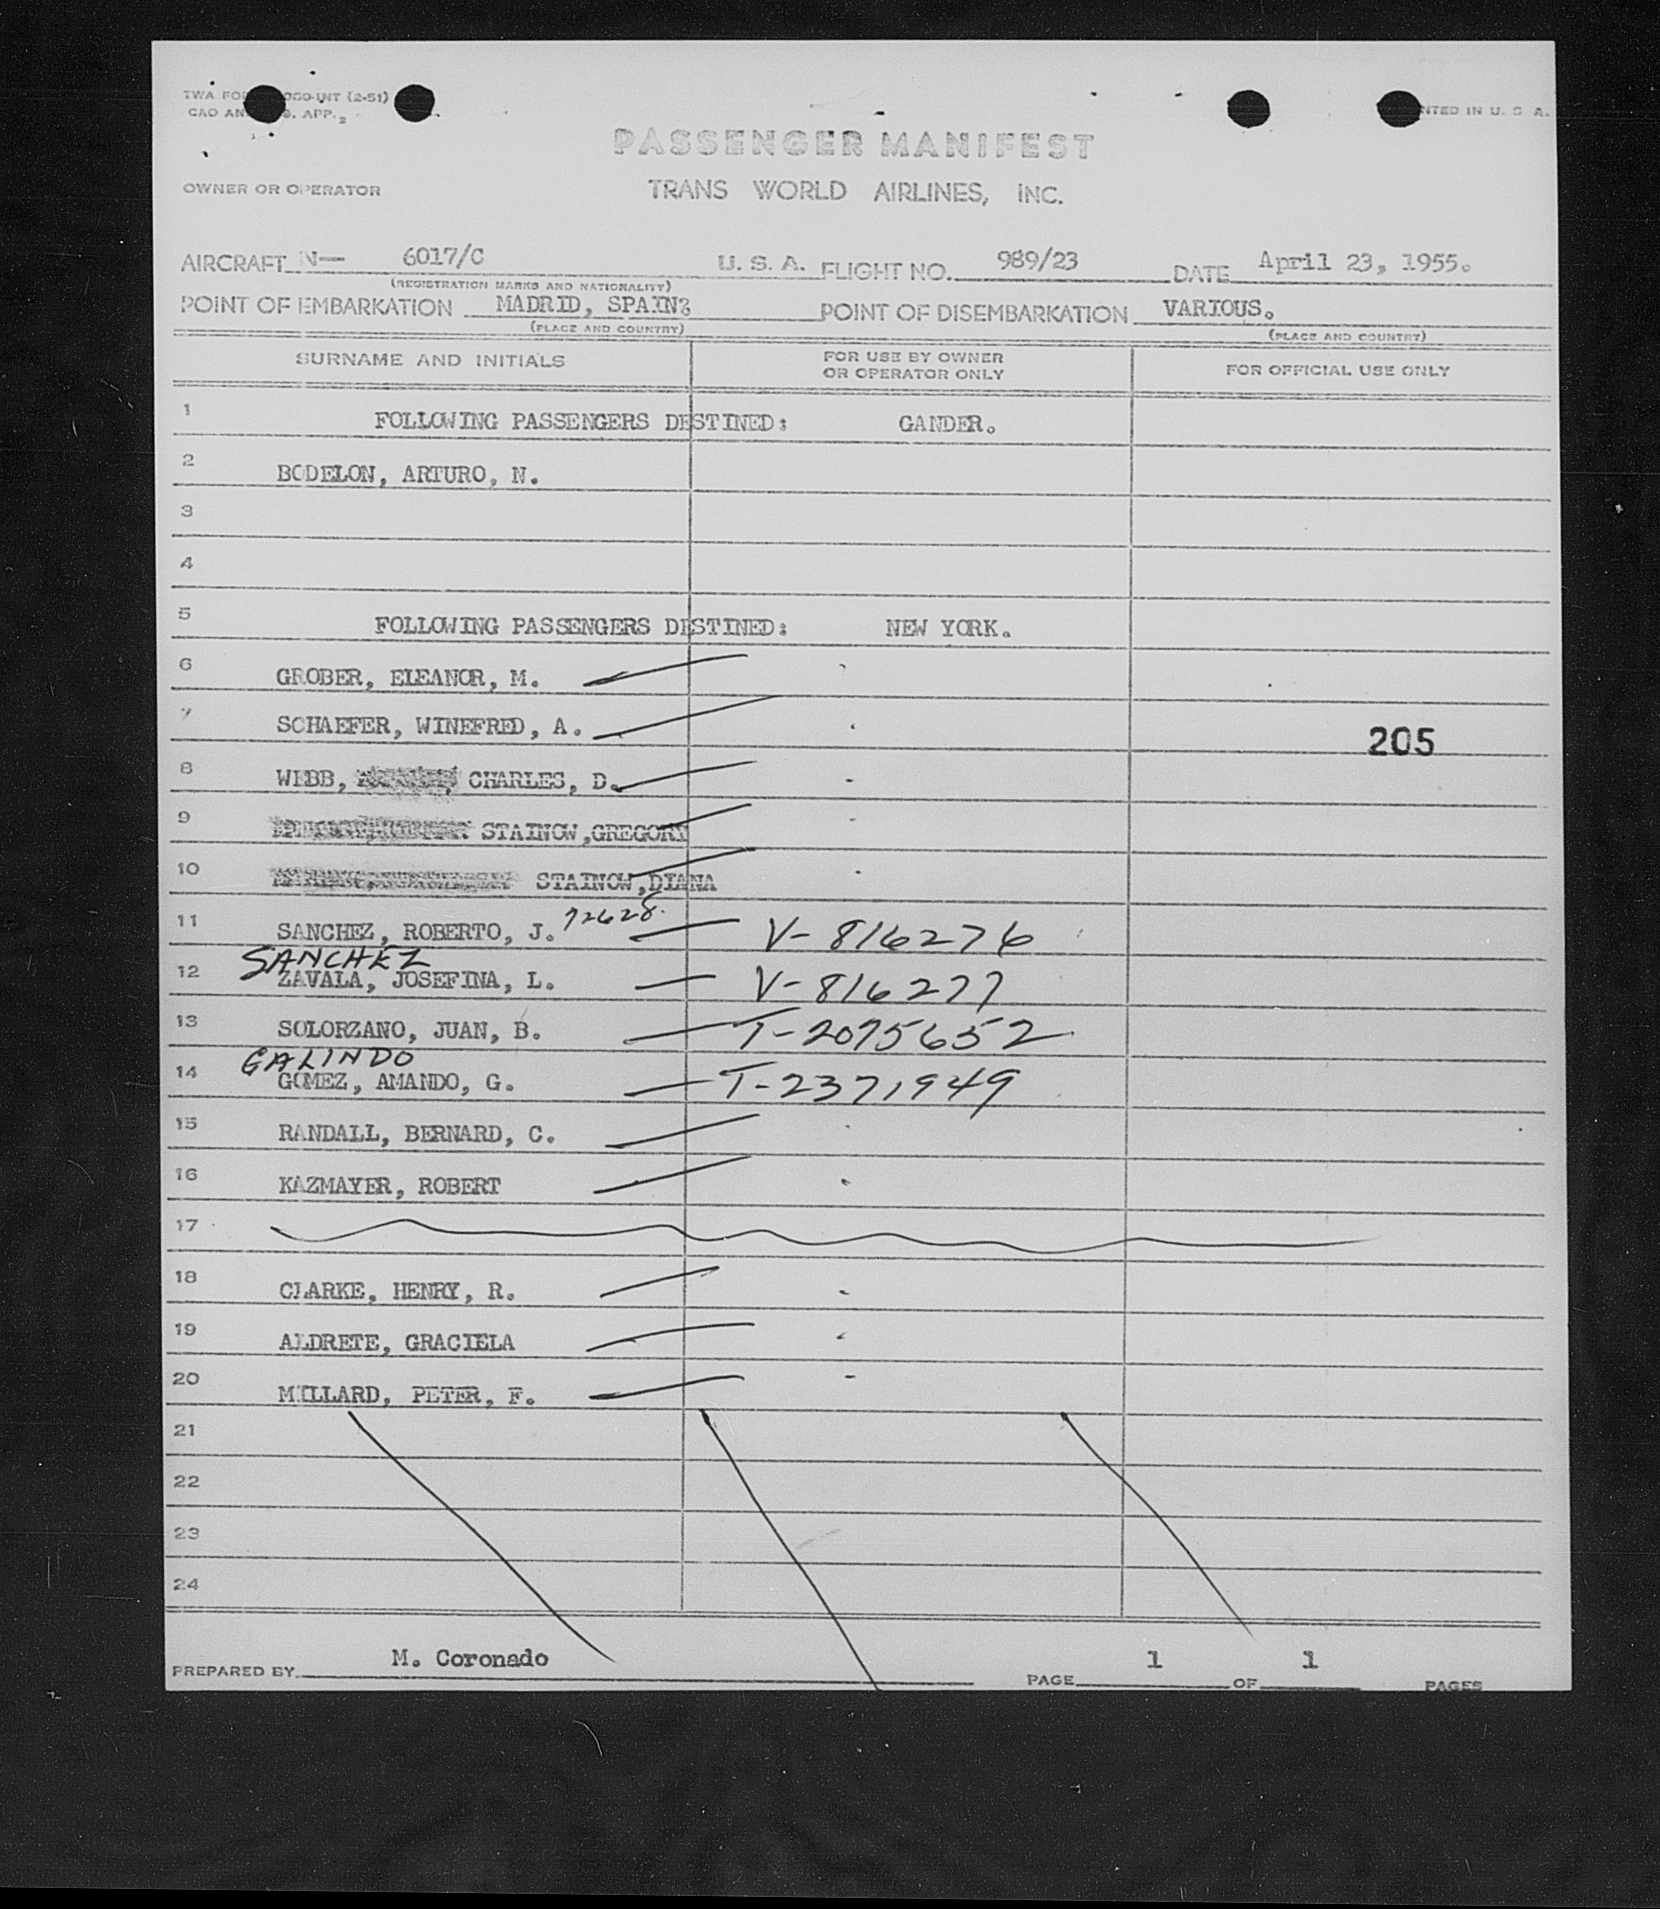 TWA FOR 060-INT (2-51)
CAO AN . APP.
NTED IN U. S. A.
PASSENGER MANIFEST
OWNER OR OPERATOR
TRANS WORLD AIRLINES, INC.
AIRCRAFT N— 6017/C U. S. A. FLIGHT NO. 989/23 DATE April 23, 1955.
(REGISTRATION MARKS AND NATIONALITY)
POINT OF EMBARKATION MADRID, SPAIN? POINT OF DISEMBARKATION VARIOUS.
(PLACE AND COUNTRY) (PLACE AND COUNTRY)
SURNAME AND INITIALS FOR USE BY OWNER OR OPERATOR ONLY FOR OFFICIAL USE ONLY
1 FOLLOWING PASSENGERS DESTINED: GANDER.
2 BODELON, ARTURO, N.
3
4
5 FOLLOWING PASSENGERS DESTINED: NEW YORK.
6 GROBER, ELEANOR, M.
7 SCHAEFER, WINEFRED, A. 205
8 WEBB, CHARLES, D.
9 STAINOW,GREGORY
10 STAINOW,DIANA
11 SANCHEZ, ROBERTO, J. 72628. V-816276
SANCHEZ
12 ZAVALA, JOSEFINA, L. V-816277
13 SOLORZANO, JUAN, B. T-2075652
GALINDO
14 GOMEZ, AMANDO, G. T-2371949
15 RANDALL, BERNARD, C.
16 KAZMAYER, ROBERT
17
18 CLARKE, HENRY, R.
19 ALDRETE, GRACIELA
20 MILLARD, PETER, F.
21
22
23
24
PREPARED BY M. Coronado PAGE 1 OF 1 PAGES